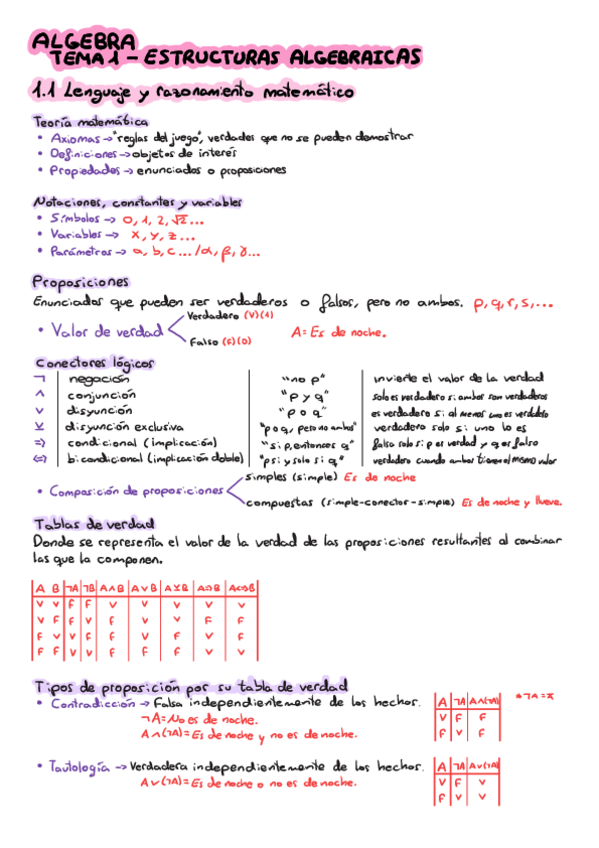 ALGEBRA
TEMA 1 - ESTRUCTURAS ALGEBRAICAS
1.1 Lenguaje y razonamiento matemático
Teoría matemática
• Axiomas → "reglas del juego", verdades que no se pueden demostrar
• Definiciones → objetos de interés
• Propiedades → enunciados o proposiciones
Notaciones, constantes y variables
• Símbolos → 0, 1, 2, √2 ...
• Variables → x, y, z ...
• Parámetros → a, b, c ... / α, β, γ...
Proposiciones
Enunciados que pueden ser verdaderos o falsos, pero no ambos. p, q, r, s, ...
• Valor de verdad
Verdadero (V)(1)
Falso (F)(0)
A = Es de noche.
Conectores lógicos
¬ negación "no p" invierte el valor de la verdad
∧ conjunción "p y q" solo es verdadero si ambos son verdaderos
∨ disyunción "p o q" es verdadero si al menos uno es verdadero
⊻ disyunción exclusiva "p o q, pero no ambos" verdadero solo si uno lo es
⇒ condicional (implicación) "si p, entonces q" falso solo si p es verdad y q es falso
⇔ bicondicional (implicación doble) "p si y solo si q" verdadero cuando ambos tienen el mismo valor
• Composición de proposiciones
simples (simple) Es de noche
compuestas (simple-conector-simple) Es de noche y llueve.
Tablas de verdad
Donde se representa el valor de la verdad de las proposiciones resultantes al combinar
las que la componen.
A B ¬A ¬B A∧B A∨B A⊻B A⇒B A⇔B
V V F F V V V V V
V F F V F V V F F
F V V F F V F V F
F F V V F F V V V
Tipos de proposición por su tabla de verdad
• Contradicción → Falsa independientemente de los hechos.
¬A = No es de noche.
A∧(¬A) = Es de noche y no es de noche.
A ¬A A∧(¬A)
V F F
F V F
* ¬A = Ā
• Tautología → Verdadera independientemente de los hechos.
A∨(¬A) = Es de noche o no es de noche.
A ¬A A∨(¬A)
V F V
F V V